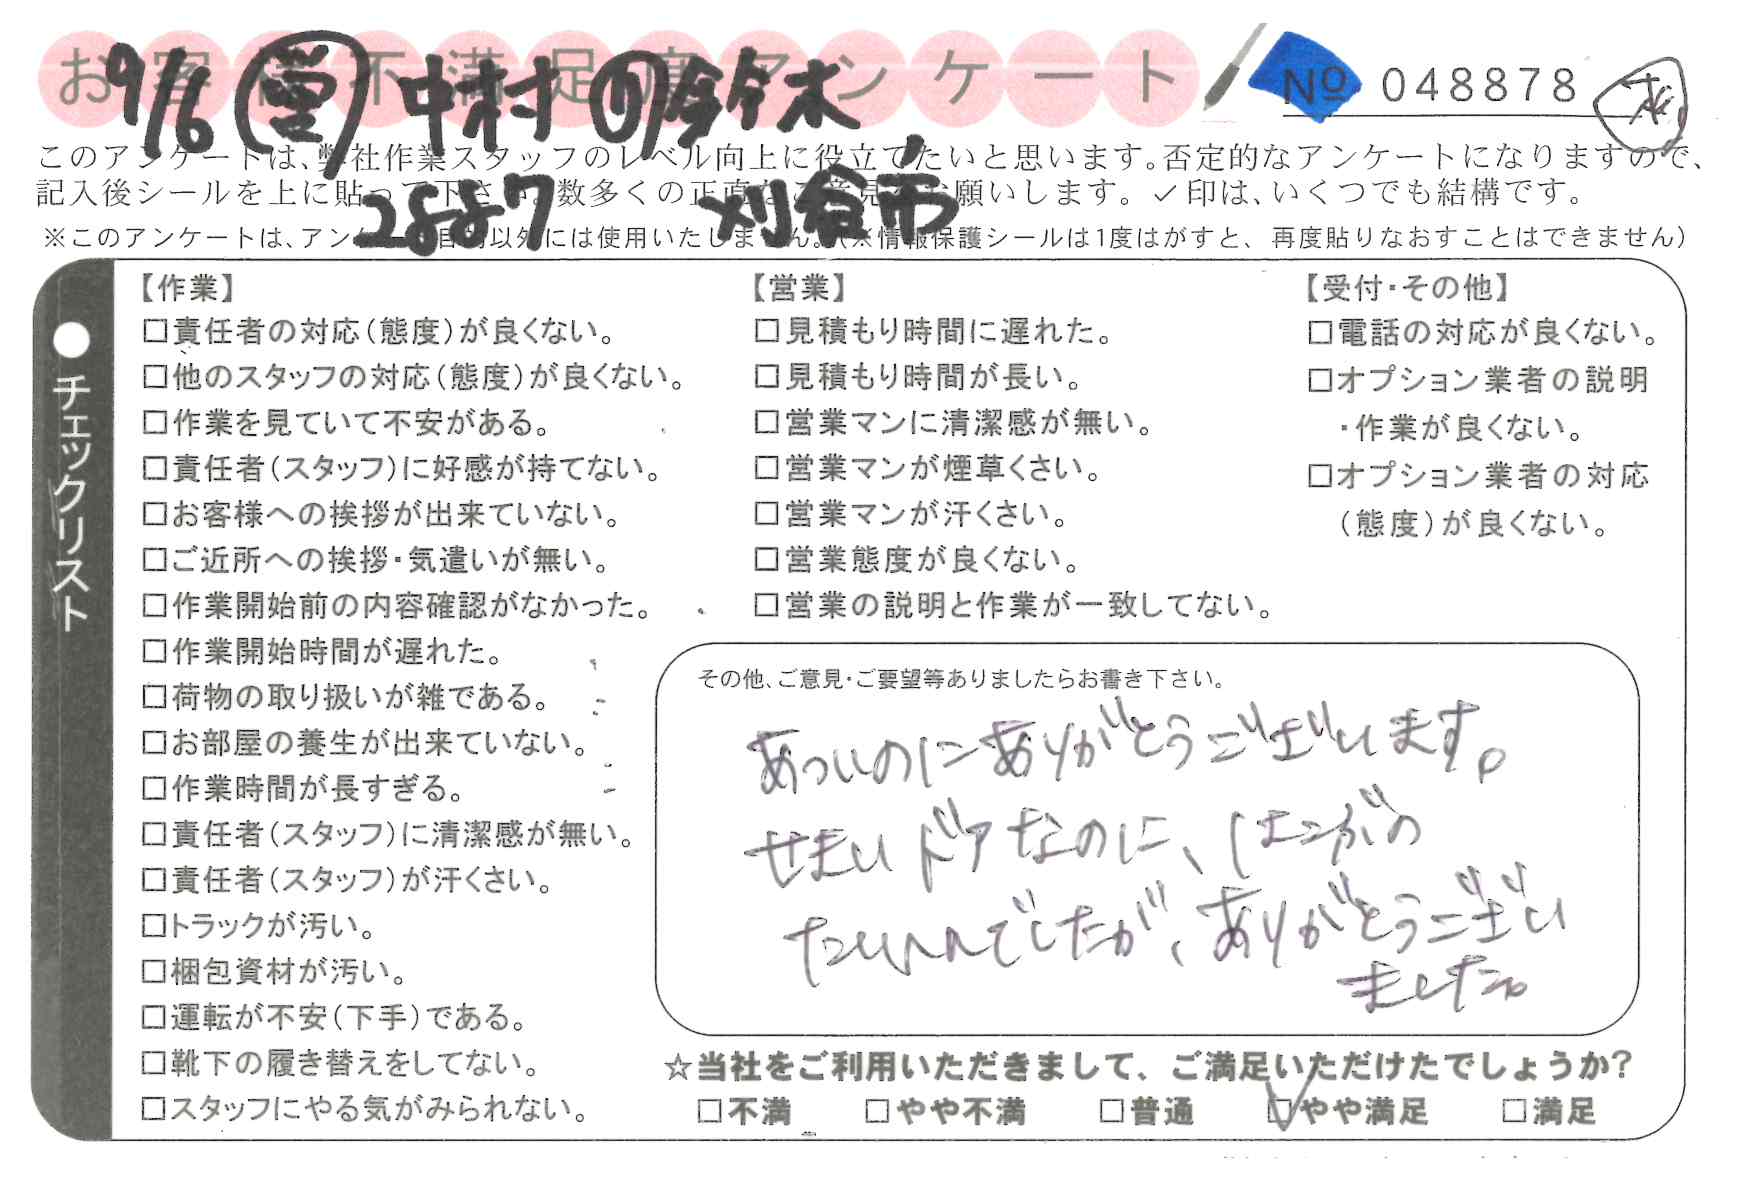 お客様不満足度アンケート
9/6 中村 鈴木
2887 刈谷市
No 048878
このアンケートは、弊社作業スタッフのレベル向上に役立てたいと思います。否定的なアンケートになりますので、
記入後シールを上に貼って下さい。数多くの正直なご意見をお願いします。✓印は、いくつでも結構です。
※このアンケートは、アンケート目的以外には使用いたしません。(※情報保護シールは1度はがすと、再度貼りなおすことはできません)
●チェックリスト
【作業】
□責任者の対応(態度)が良くない。
□他のスタッフの対応(態度)が良くない。
□作業を見ていて不安がある。
□責任者(スタッフ)に好感が持てない。
□お客様への挨拶が出来ていない。
□ご近所への挨拶・気遣いが無い。
□作業開始前の内容確認がなかった。
□作業開始時間が遅れた。
□荷物の取り扱いが雑である。
□お部屋の養生が出来ていない。
□作業時間が長すぎる。
□責任者(スタッフ)に清潔感が無い。
□責任者(スタッフ)が汗くさい。
□トラックが汚い。
□梱包資材が汚い。
□運転が不安(下手)である。
□靴下の履き替えをしてない。
□スタッフにやる気がみられない。
【営業】
□見積もり時間に遅れた。
□見積もり時間が長い。
□営業マンに清潔感が無い。
□営業マンが煙草くさい。
□営業マンが汗くさい。
□営業態度が良くない。
□営業の説明と作業が一致してない。
【受付・その他】
□電話の対応が良くない。
□オプション業者の説明
・作業が良くない。
□オプション業者の対応
(態度)が良くない。
その他、ご意見・ご要望等ありましたらお書き下さい。
あついのにありがとうございます。
せまいドアなのに、はこぶの
たいへんでしたが、ありがとうござい
ました。
☆当社をご利用いただきまして、ご満足いただけたでしょうか?
□不満 □やや不満 □普通 ☑やや満足 □満足